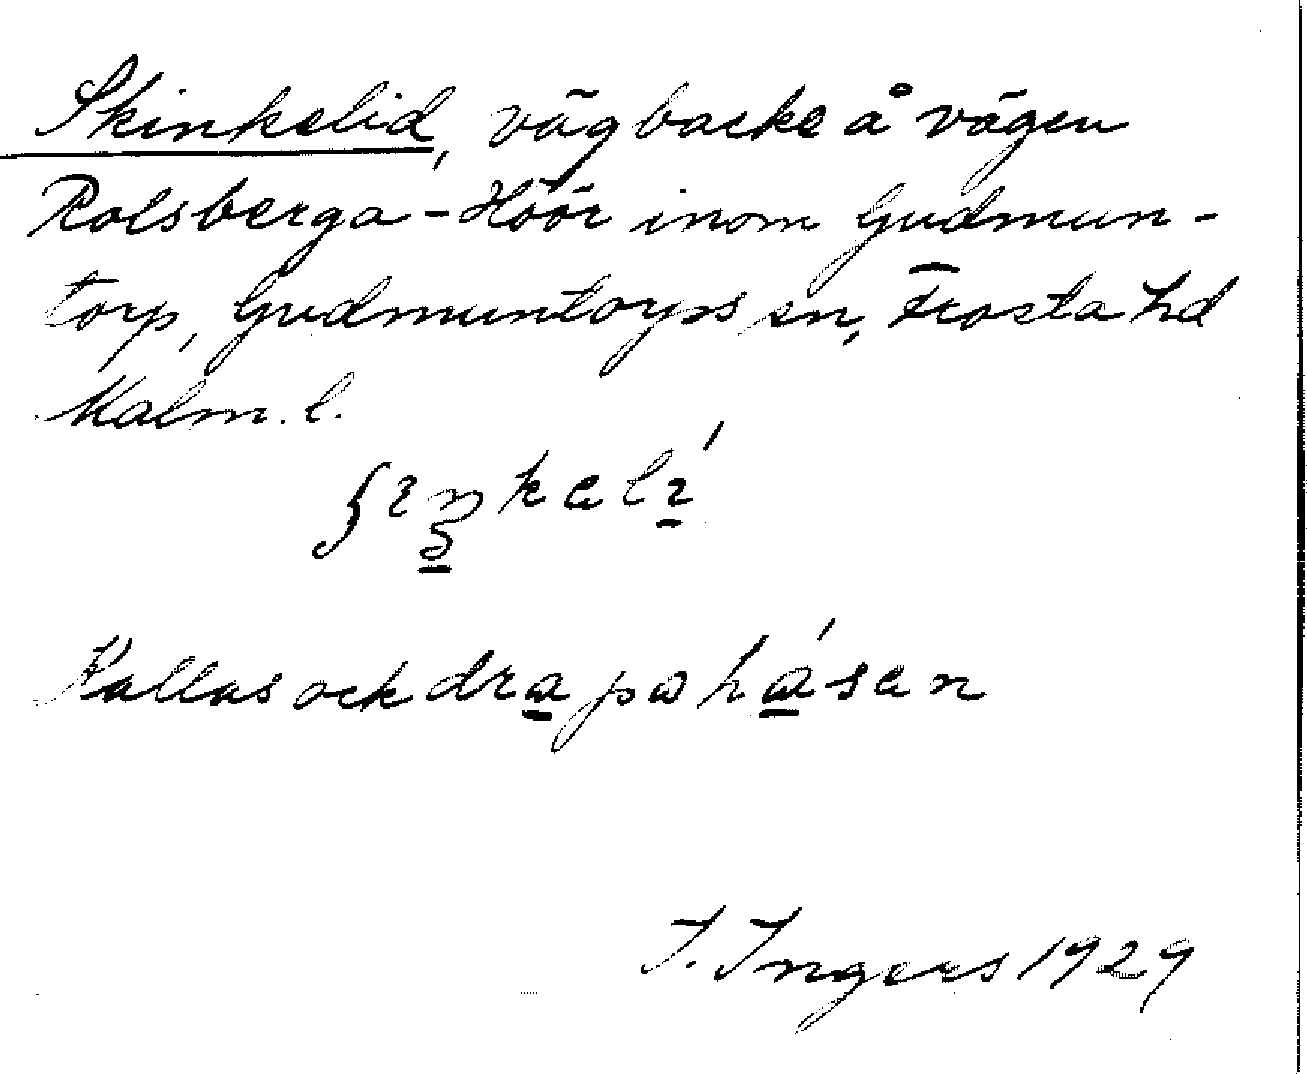 Skinkelid, vägbacke å vägen
Rolsberga-Höör inom Gudmun-
torp, Gudmuntorps sn, Frosta hd
Malm. l.
Kallas ock drapahåsen
I. Ingers 1929